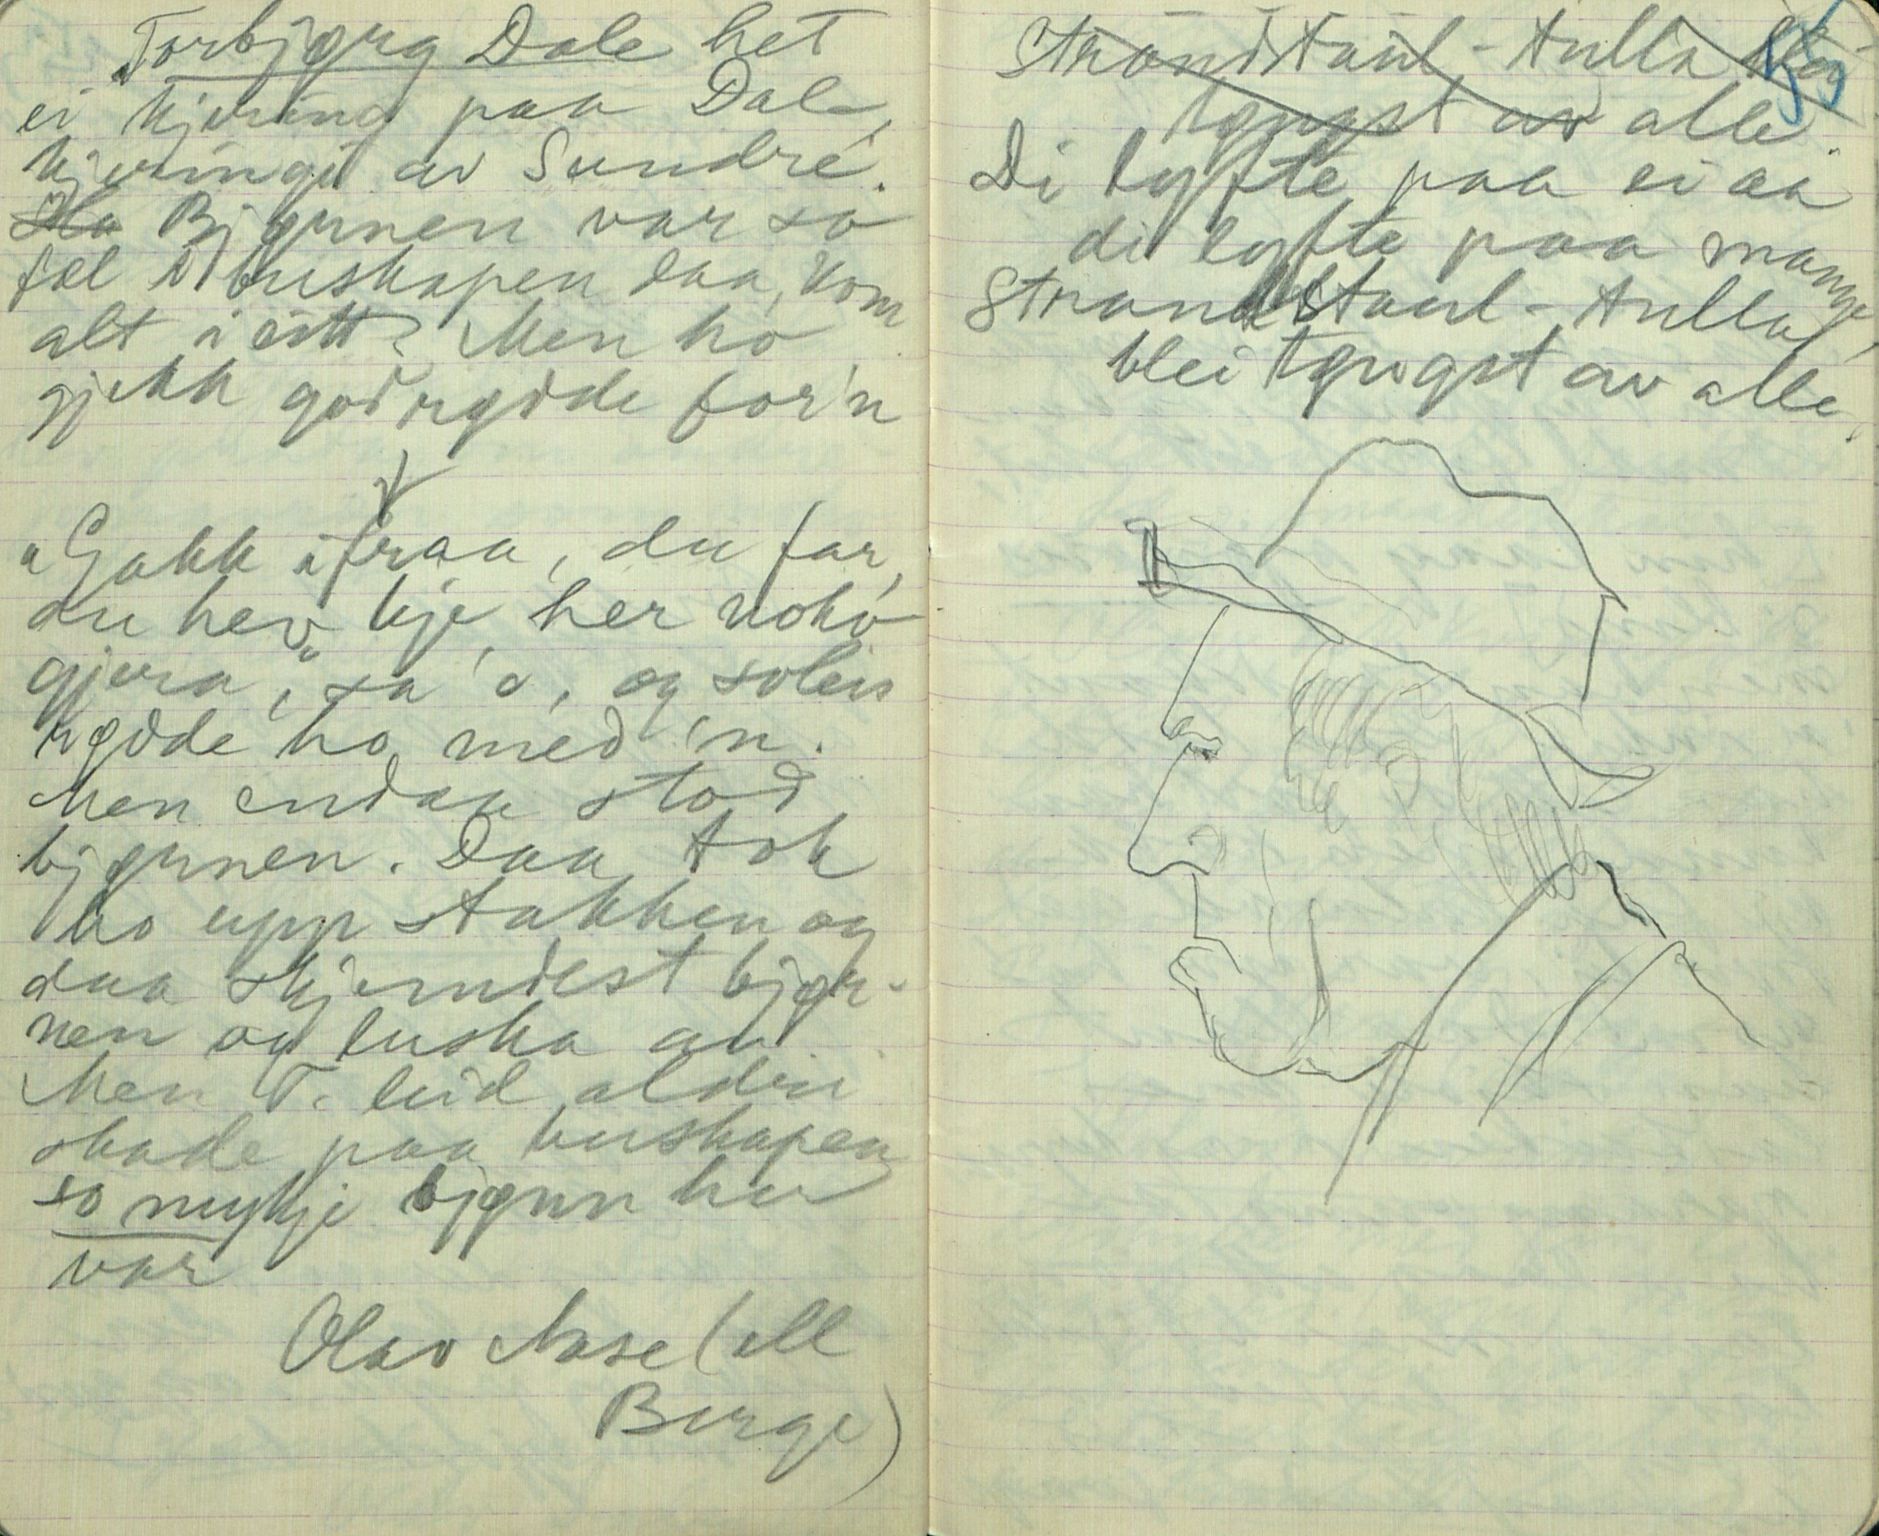 Torbjørg Dale het
ei kjering paa Dale,
kjeringi av Sundre.
Ho Bjørnen var so
fæl i buskapen daa, kom
alt i eitt. Men ho
gjekk god rødde for'n
"Gakk ifraa, du far,
du hev kje her noko
gjera", sa 'o, og soleis
rødde ho med 'n.
Men endaa stod
bjørnen. Daa tok
ho upp stakken og
daa skjemdest bjør-
nen og luska av.
Men T. leid aldri
skade paa buskapen
so mykje bjønn her
var
Olav Aase (ell
Berge)
55
Strandstaul-Tulla
tøngst av alle.
Di lyfte paa ei aa
di lyfte paa mange,
Strandstaul-Tulla
blei tøngst av alle.